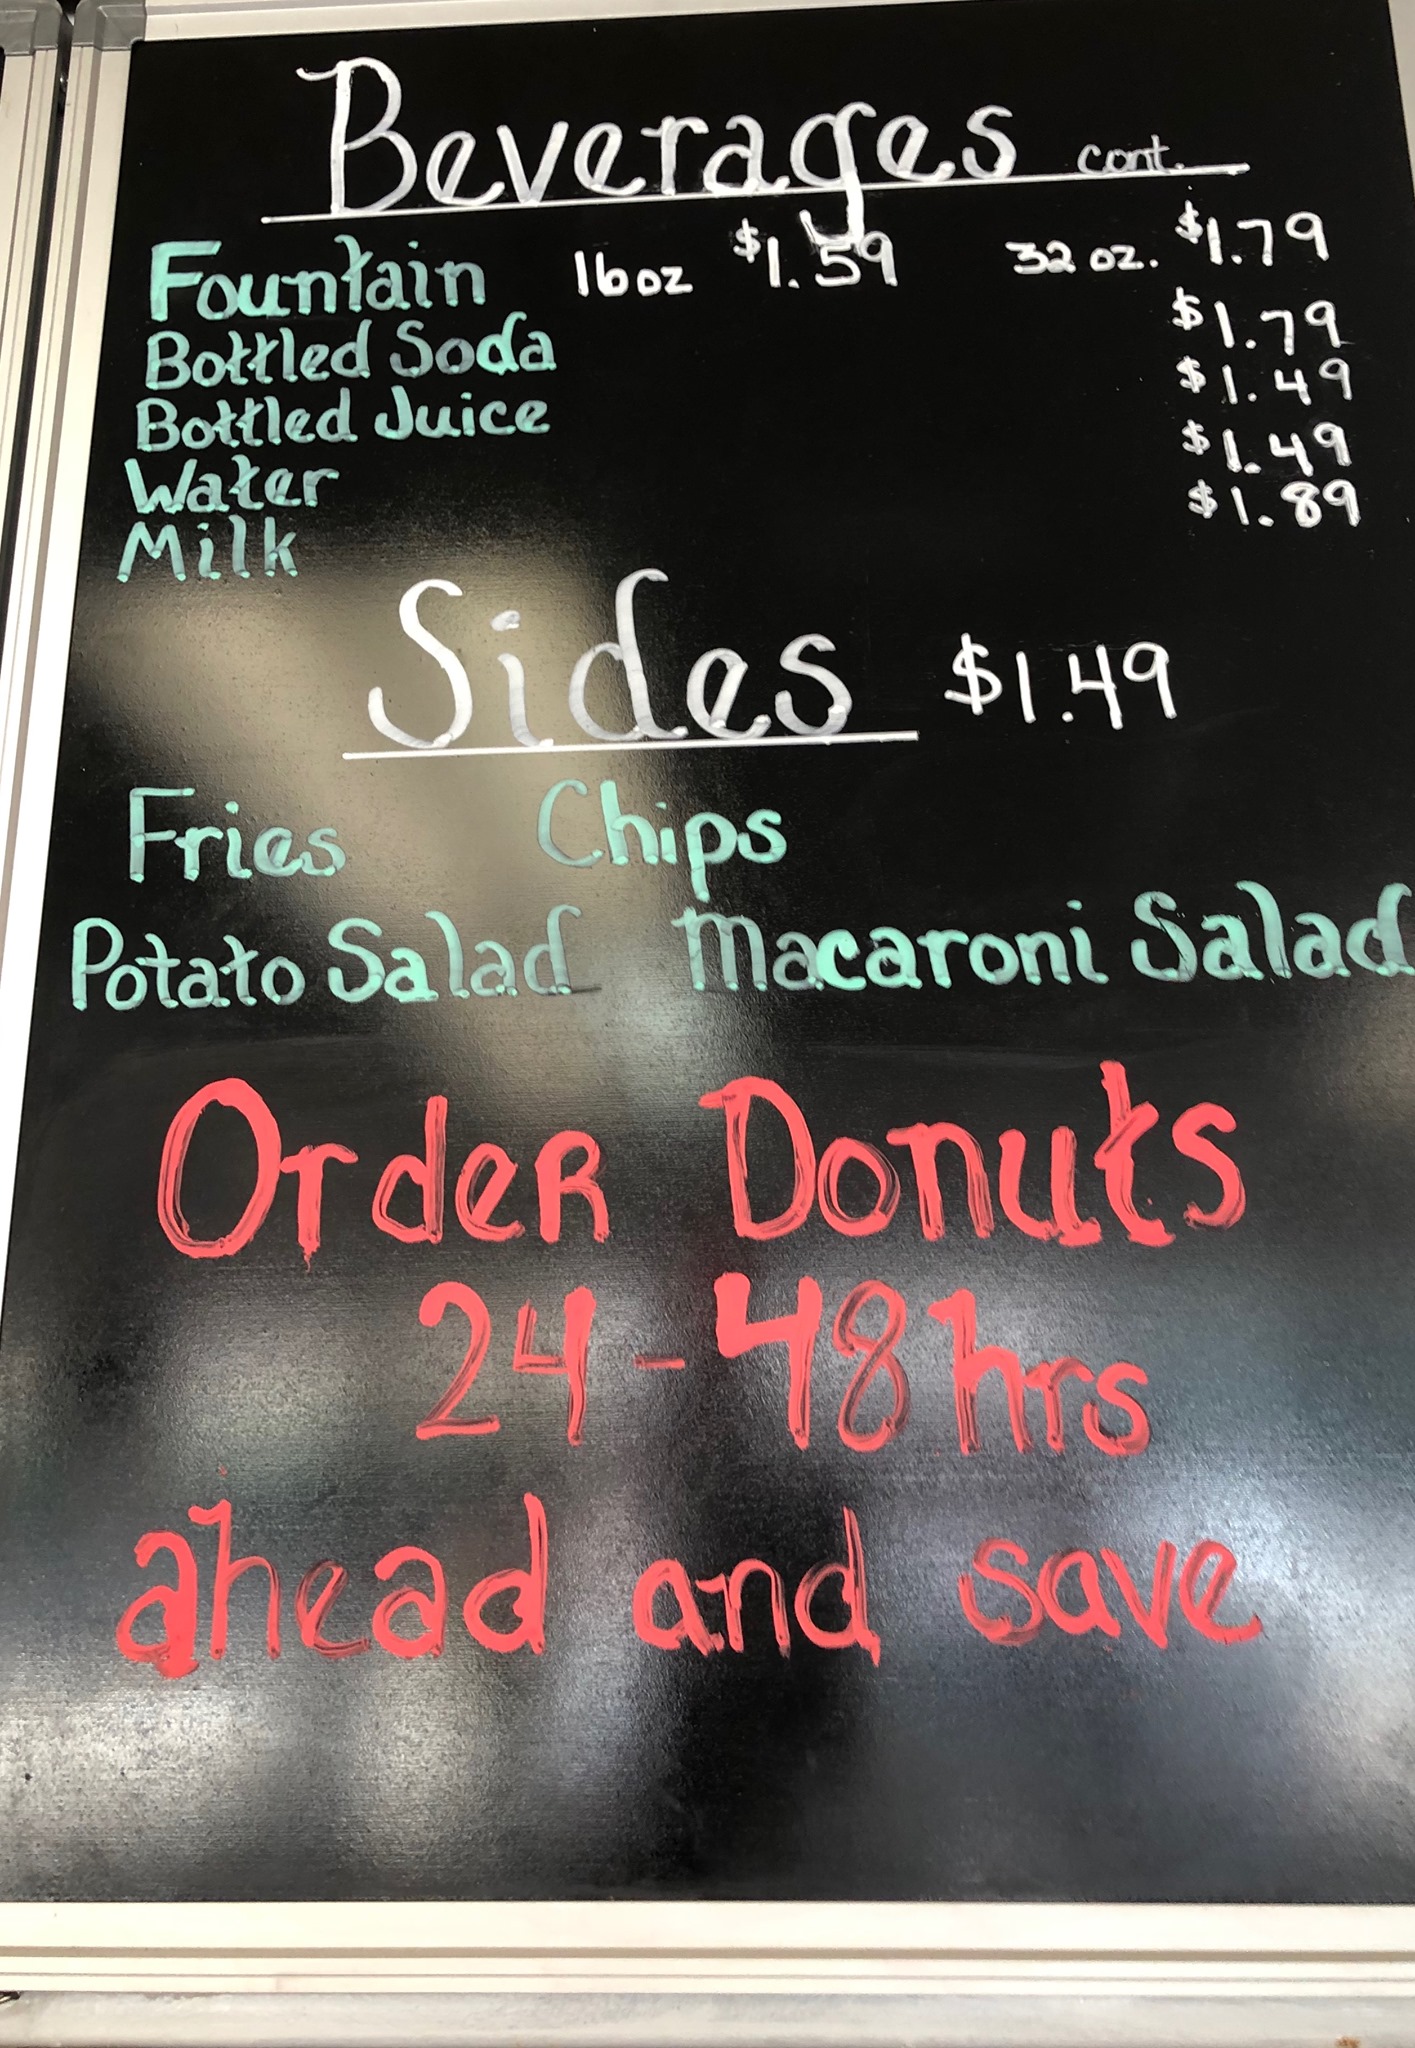 Beverages cont.
Fountain 16oz $1.59 32 oz. $1.79
Bottled Soda $1.79
Bottled Juice $1.49
Water $1.49
Milk $1.89
Sides $1.49
Fries Chips
Potato Salad Macaroni Salad
Order Donuts
24-48hrs
ahead and save